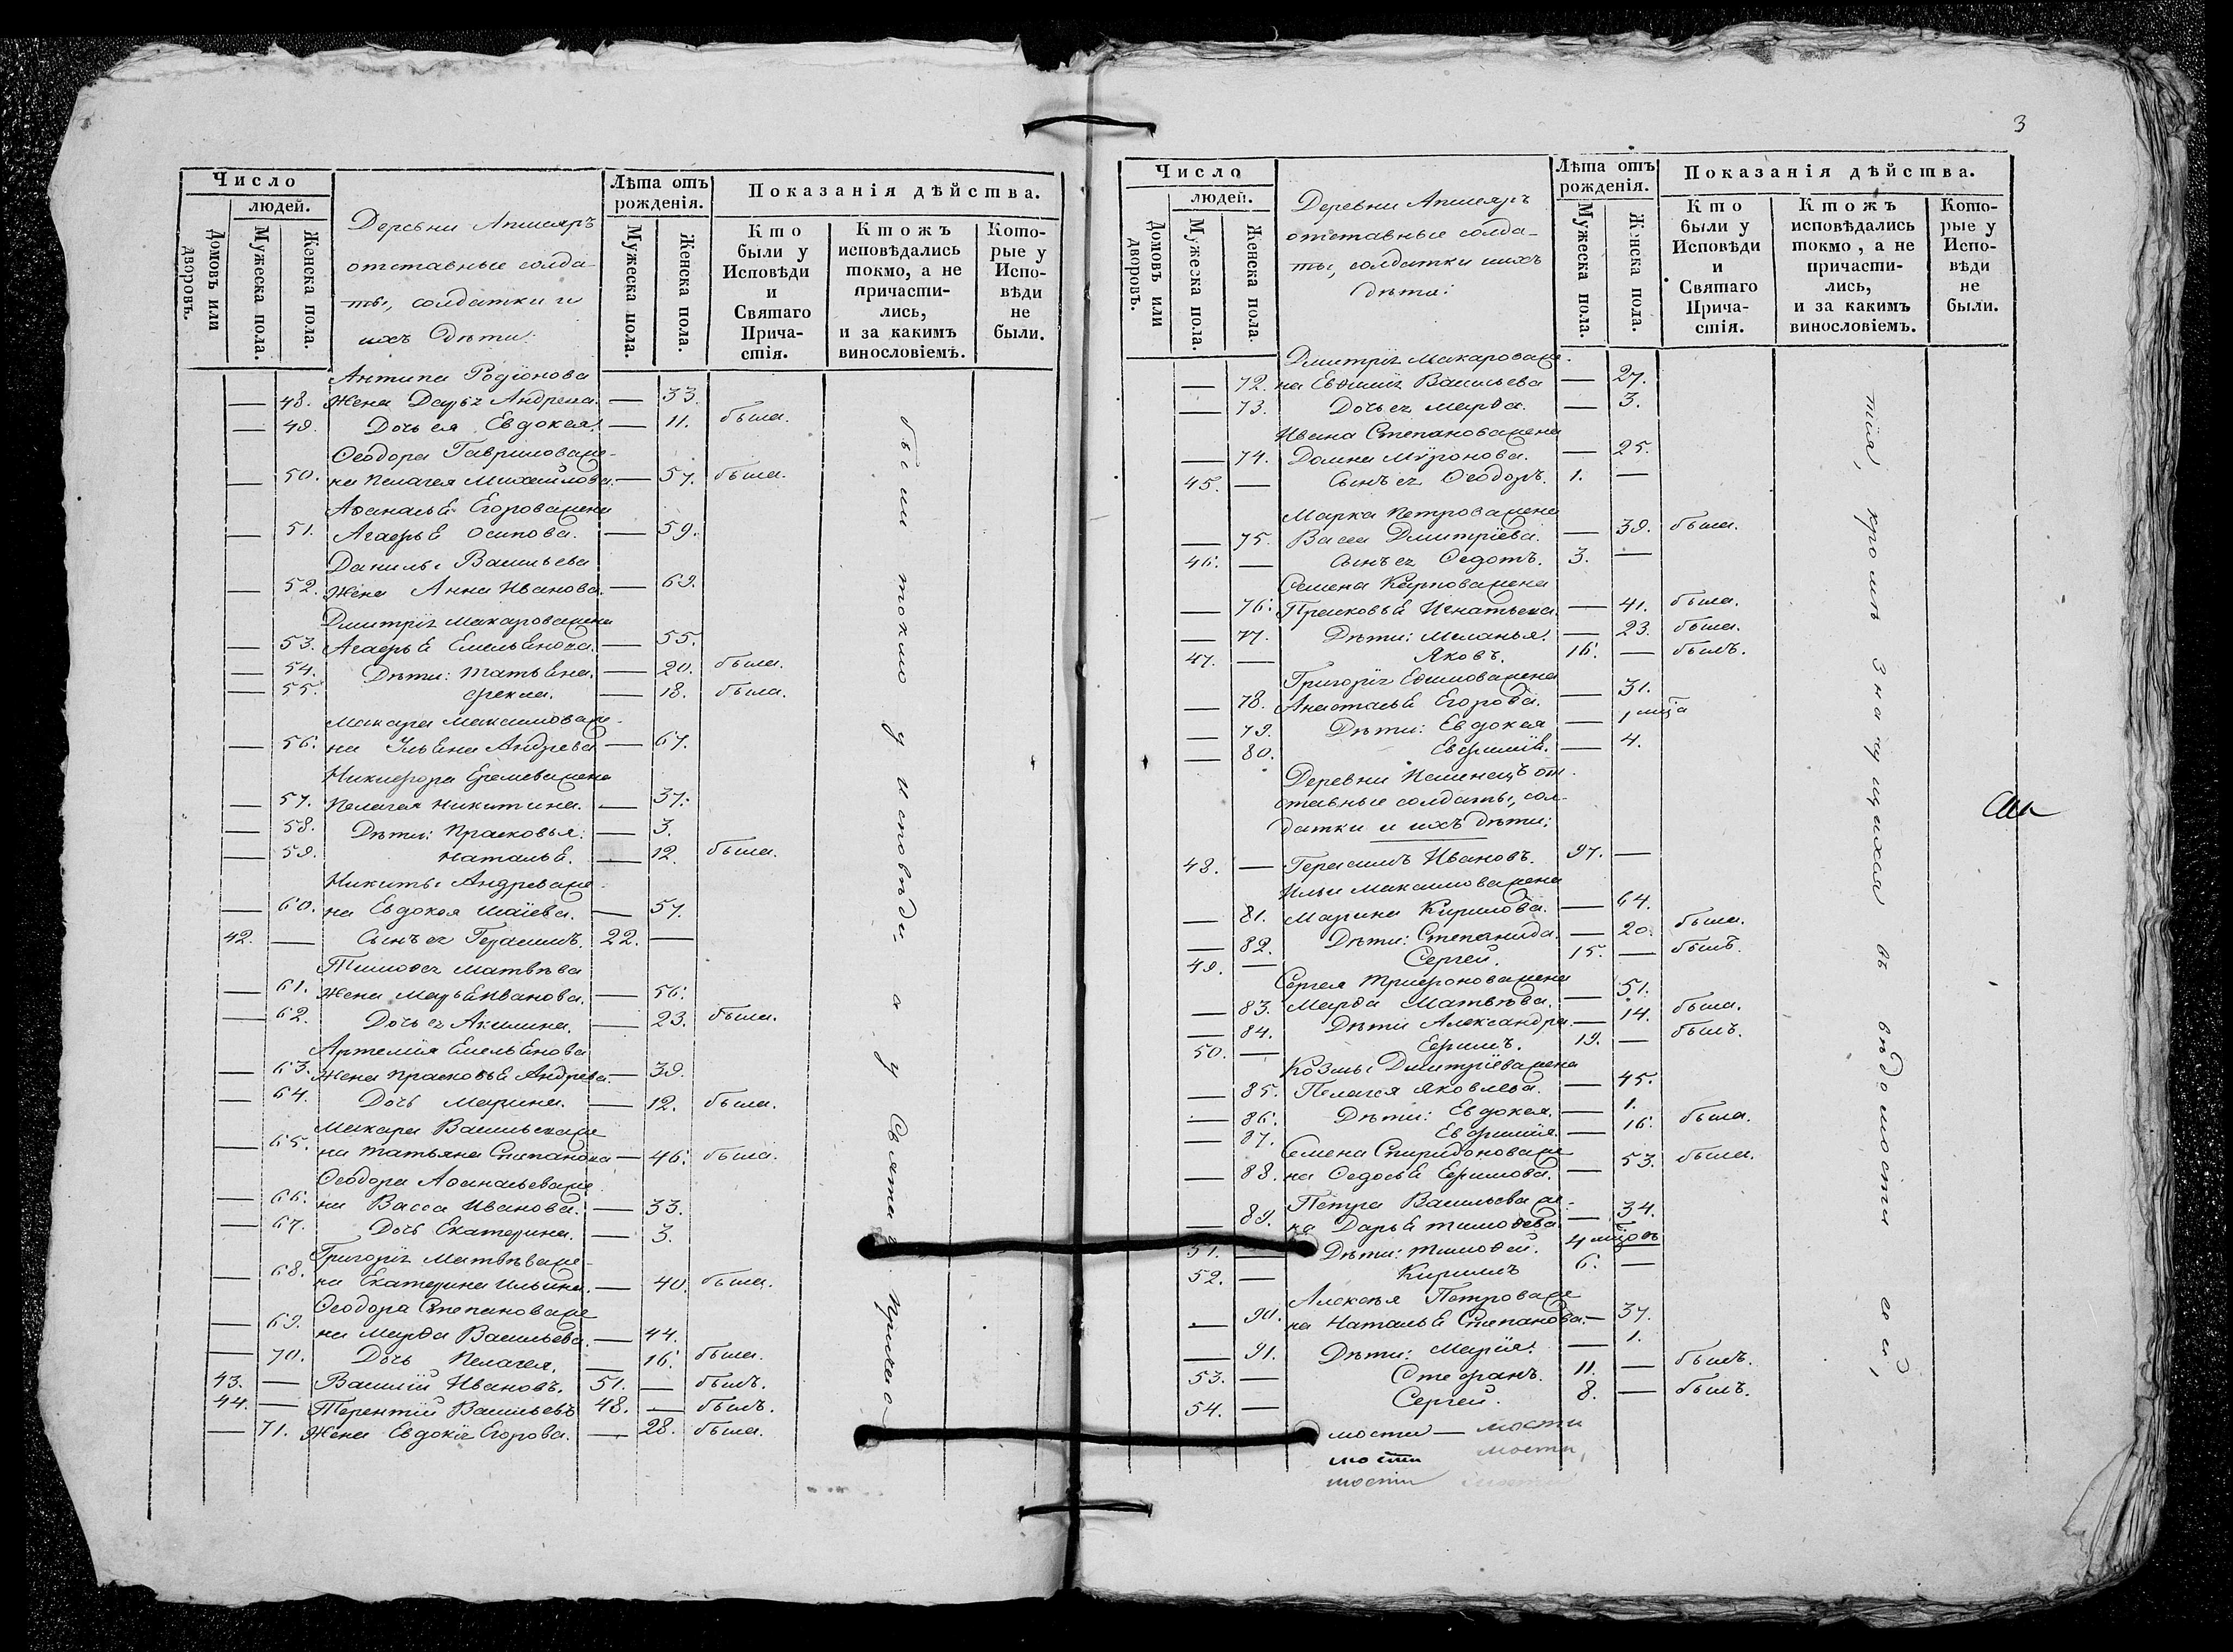 Число
людей.
Домовъ или дворовъ.
Мужеска пола.
Женска пола.
Деревни Апшеяръ
отставные солда-
ты, солдатки и
ихъ Дѣти:
Лѣта отъ рожденія.
Мужеска пола.
Женска пола.
Показанія дѣйства.
Кто были у Исповѣди и Святаго Прича-стія.
Ктожъ исповѣдались токмо, а не причасти-лись, и за какимъ винословіемъ.
Кото-рые у Испо-вѣди не были.
Антипа Родіонова
— 48. Жена Дарья Андреева. — 33.
— 49. Дочь ея Евдокея. — 11. была.
Ѳеодора Гаврилова же-
— 50. на Пелагея Михайлова. — 57. была.
Аѳанасья Егорова жена
— 51. Агафья Осипова. — 59.
Данилы Васильева
— 52. Жена Анна Иванова. — 69.
Дмитрія Макарова жена
— 53. Агафья Емельянова. — 55.
— 54. Дѣти: Татьяна. — 20. была.
— 55. Фекла. — 18. была.
Макара Максимова же-
— 56. на Ульяна Андреева — 67.
Никифора Еремева жена
— 57. Пелагея Никитина. — 37.
— 58. Дѣти: Прасковья. — 3.
— 59. Наталья. — 12. была.
Никиты Андреева же-
— 60. на Евдокея Исаіева. — 57.
42. — Сынъ ея Герасимъ. 22. —
Тимоѳея Матвѣва
— 61. Жена Марья Иванова. — 56.
— 62. Дочь ея Акилина. — 23. была.
Артемія Емельянова
— 63. Жена Прасковья Андреева. — 39.
— 64. Дочь Марина. — 12. была.
Макара Васильева же
— 65. на Татьяна Степанова — 46. была.
Ѳеодора Аѳанасьева же
— 66. на Васса Иванова. — 33.
— 67. Дочь Екатерина. — 3.
Григорія Матвѣва же-
— 68. на Екатерина Ильина. — 40. была.
Ѳеодора Степанова же
— 69. на Марѳа Васильева. — 44.
— 70. Дочь Пелагея. — 16. была.
43. — Василій Ивановъ. 51. — былъ.
44. — Терентій Васильевъ 48. — былъ.
— 71. Жена Евдокія Егорова. — 28. была.
были токмо у исповѣди, а у Святаго Причас-
3
Число
людей.
Домовъ или дворовъ.
Мужеска пола.
Женска пола.
Деревни Апшеяръ
отставные солда-
ты, солдатки и ихъ
дѣти:
Лѣта отъ рожденія.
Мужеска пола.
Женска пола.
Показанія дѣйства.
Кто были у Исповѣди и Святаго Прича-стія.
Ктожъ исповѣдались токмо, а не причасти-лись, и за какимъ винословіемъ.
Кото-рые у Испо-вѣди не были.
Дмитрія Макарова же-
— 72. на Евѳимія Васильева — 27.
— 73. Дочь ея Марѳа. — 3.
Ивана Степанова жена
— 74. Домна Муронова. — 25.
45. — Сынъ ея Ѳеодоръ. 1. —
Марка Петрова жена
— 75. Васса Дмитріева. — 39. была.
46. — Сынъ ея Ѳедотъ. 3. —
Семена Карпова жена
— 76. Прасковья Игнатьева. — 41. была.
— 77. Дѣти: Меланья. — 23. была.
47. — Яковъ. 16. — былъ.
Григорія Еѳимова жена
— 78. Анастасья Егорова. — 31.
— 79. Дѣти: Евдокея — 1 мѣца
— 80. Евфимія. — 4.
от-
ставные солдаты, сол-
датки и ихъ дѣти:
48. — Герасимъ Ивановъ. 97. —
Ильи Максимова жена
— 81. Марина Кирилова. — 64.
— 82. Дѣти: Степанида. — 20. была.
49. — Сергей. 15. — былъ.
Сергея Трифонова жена
— 83. Марѳа Матвѣва. — 51.
— 84. Дѣти Александра. — 14. была.
50. — Ефимъ. 19. — былъ.
Козмы Дмитріева жена
— 85. Пелагея Яковлева. — 45.
— 86. Дѣти: Евдокея. — 1.
— 87. Евфимія. — 16. была.
Семена Спиридонова же
— 88. на Ѳедосья Ефимова. — 53. была.
Петра Васильева же-
— 89. на Дарья Тимоѳева — 34.
51. — Дѣти: Тимоѳей. 4 мѣцовъ —
52. — Кириллъ 6. —
Алексѣя Петрова же
— 90. на Наталья Степанова. — 37.
— 91. Дѣти: Марія. — 1.
53. — Стефанъ. 11. — былъ.
54. — Сергей. 8. — былъ.
мости — мости
мости мости,
мости
тія, кромѣ значущихся въ вѣдомости сей,